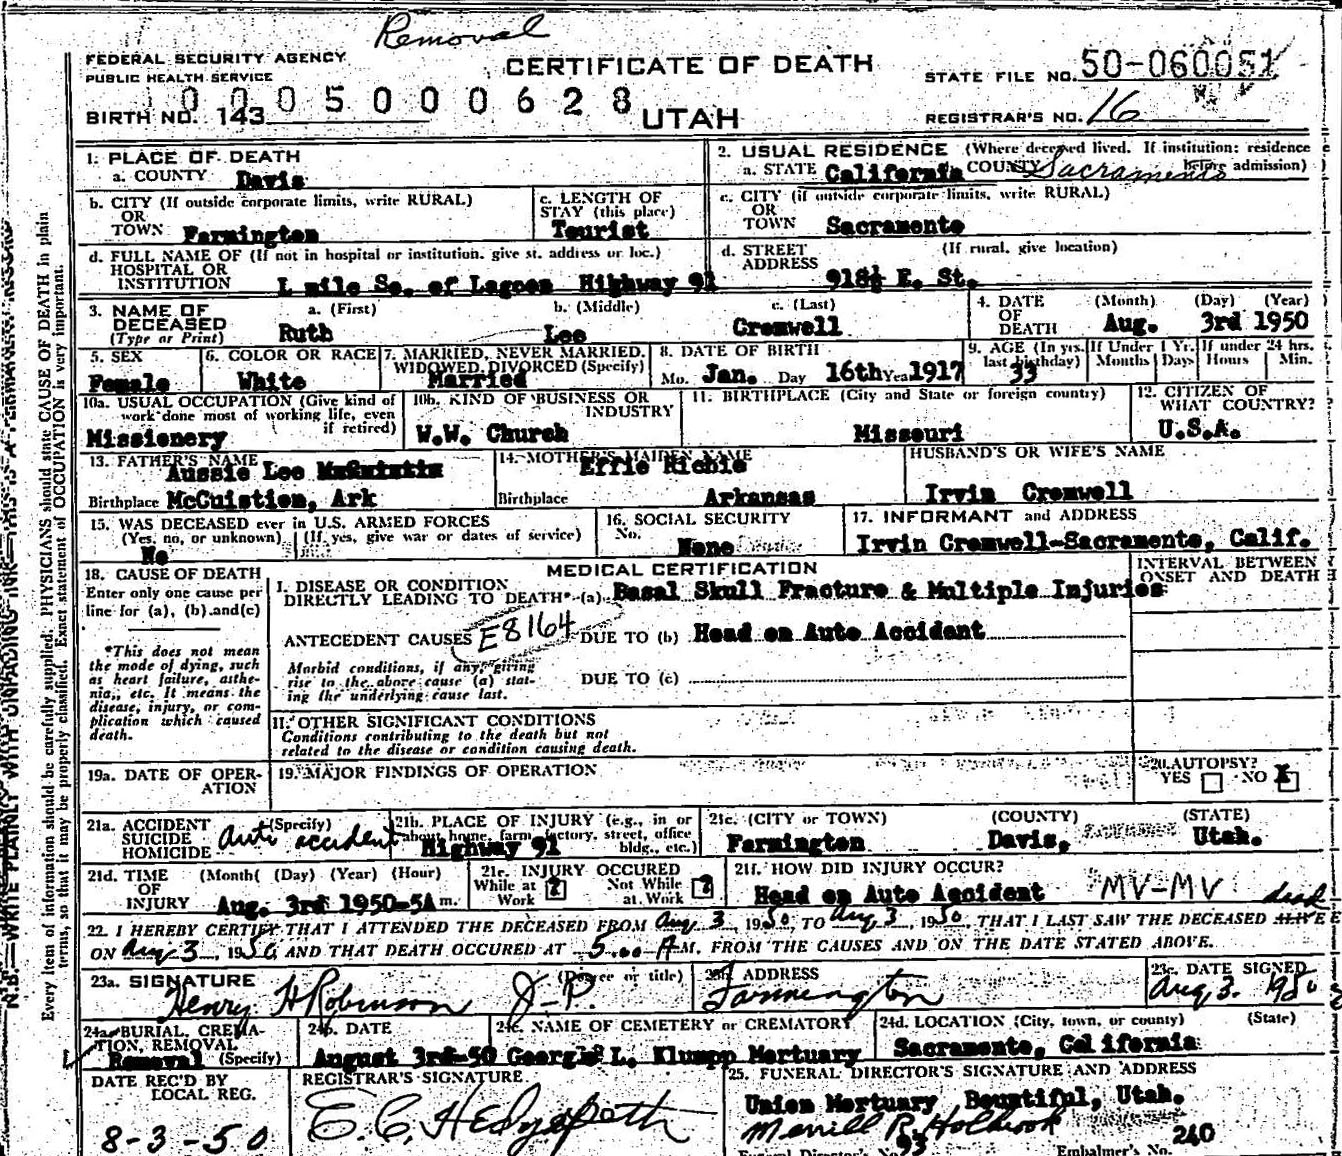 Removal
FEDERAL SECURITY AGENCY
PUBLIC HEALTH SERVICE
CERTIFICATE OF DEATH
STATE FILE NO. 50-060051
0005000628
BIRTH NO. 143
UTAH
REGISTRAR'S NO. 16
1. PLACE OF DEATH
a. COUNTY Davis
2. USUAL RESIDENCE (Where deceased lived. If institution: residence before admission)
a. STATE California COUNTY Sacramento
b. CITY (If outside corporate limits, write RURAL)
OR
TOWN Farmington
c. LENGTH OF
STAY (this place)
Tourist
c. CITY (if outside corporate limits, write RURAL)
OR
TOWN Sacramento
d. FULL NAME OF (If not in hospital or institution. give st. address or loc.)
HOSPITAL OR
INSTITUTION 1 mile So. of Lagoon Highway 91
d. STREET
ADDRESS
(If rural, give location)
918½ E. St.
3. NAME OF
DECEASED
(Type or Print)
a. (First)
Ruth
b. (Middle)
Lee
c. (Last)
Cromwell
4. DATE
OF
DEATH
(Month) (Day) (Year)
Aug. 3rd 1950
5. SEX
Female
6. COLOR OR RACE
White
7. MARRIED, NEVER MARRIED,
WIDOWED, DIVORCED (Specify)
Married
8. DATE OF BIRTH
Mo. Jan. Day 16th Year 1917
9. AGE (In yrs.
last birthday)
33
If Under 1 Yr.
Months Days
If under 24 hrs.
Hours Min.
10a. USUAL OCCUPATION (Give kind of
work done most of working life, even
if retired)
Missionery
10b. KIND OF BUSINESS OR
INDUSTRY
W.W. Church
11. BIRTHPLACE (City and State or foreign country)
Missouri
12. CITIZEN OF
WHAT COUNTRY?
U.S.A.
13. FATHER'S NAME
Aussie Lee
Birthplace McCuistion, Ark
14. MOTHER'S MAIDEN NAME
Effie Richie
Birthplace Arkansas
HUSBAND'S OR WIFE'S NAME
Irvin Cromwell
15. WAS DECEASED ever in U.S. ARMED FORCES
(Yes, no, or unknown) (If yes, give war or dates of service)
No
16. SOCIAL SECURITY
No.
None
17. INFORMANT and ADDRESS
Irvin Cromwell-Sacramento, Calif.
18. CAUSE OF DEATH
Enter only one cause per
line for (a), (b) and (c)
MEDICAL CERTIFICATION
INTERVAL BETWEEN
ONSET AND DEATH
I. DISEASE OR CONDITION
DIRECTLY LEADING TO DEATH* (a) Basal Skull Fracture & Multiple Injuries
ANTECEDENT CAUSES E8164 DUE TO (b) Head on Auto Accident
*This does not mean
the mode of dying, such
as heart failure, asthe-
nia, etc. It means the
disease, injury, or com-
plication which caused
death.
Morbid conditions, if any, giving
rise to the above cause (a) stat-
ing the underlying cause last.
DUE TO (c)
II. OTHER SIGNIFICANT CONDITIONS
Conditions contributing to the death but not
related to the disease or condition causing death.
19a. DATE OF OPER-
ATION
19. MAJOR FINDINGS OF OPERATION
20. AUTOPSY?
YES NO X
21a. ACCIDENT
SUICIDE
HOMICIDE
(Specify)
Auto accident
21b. PLACE OF INJURY (e.g., in or
about home, farm, factory, street, office
bldg., etc.)
Highway 91
21c. (CITY or TOWN) (COUNTY) (STATE)
Farmington Davis, Utah.
21d. TIME
OF
INJURY
(Month) (Day) (Year) (Hour)
Aug. 3rd 1950-5A m.
21e. INJURY OCCURED
While at
Work ?
Not While
at Work ?
21f. HOW DID INJURY OCCUR?
Head on Auto Accident MV-MV
22. I HEREBY CERTIFY THAT I ATTENDED THE DECEASED FROM Aug 3, 1950, TO Aug 3, 1950, THAT I LAST SAW THE DECEASED ALIVE dead
ON Aug 3, 1950, AND THAT DEATH OCCURED AT 5:00 A M. FROM THE CAUSES AND ON THE DATE STATED ABOVE.
23a. SIGNATURE (Degree or title)
Henry H Robinson J-P.
23b. ADDRESS
Farmington
23c. DATE SIGNED
Aug 3. 1950
24a. BURIAL, CREMA-
TION, REMOVAL
Removal (Specify)
24b. DATE
August 3rd-50
24c. NAME OF CEMETERY or CREMATORY
George L. Klumpp Mortuary
24d. LOCATION (City, town, or county) (State)
Sacramento, California
DATE REC'D BY
LOCAL REG.
8-3-50
REGISTRAR'S SIGNATURE
25. FUNERAL DIRECTOR'S SIGNATURE AND ADDRESS
Union Mortuary Bountiful, Utah.
Merrill R. Holbrook
Funeral Director's No. 93
Embalmer's No. 240
N.B.—WRITE PLAINLY WITH UNFADING INK—THIS IS A PERMANENT RECORD
Every item of information should be carefully supplied. PHYSICIANS should state CAUSE OF DEATH in plain
terms, so that it may be properly classified. Exact statement of OCCUPATION is very important.